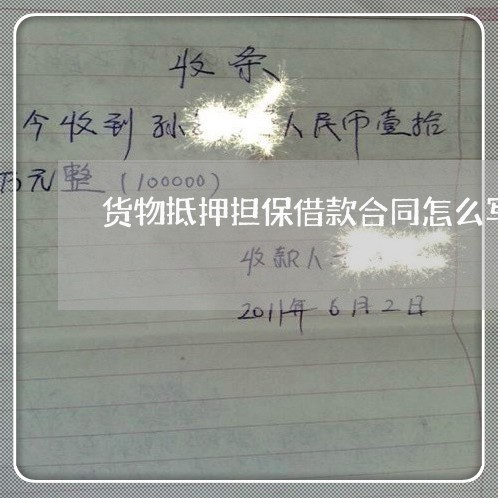 收条
今收到孙 人民币壹拾
万元整(100000)
货物抵押担保借款合同怎么写
收款人:
2011年6月2日